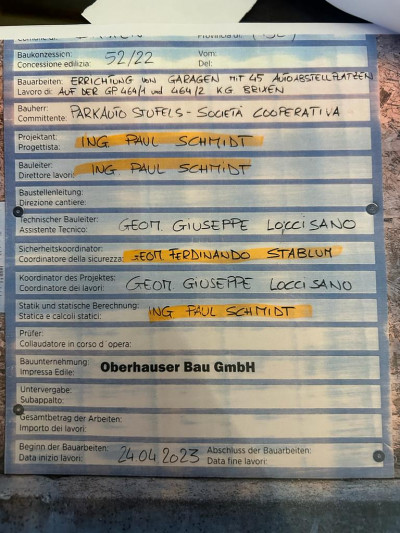 Baukonzession: 52/22 Vom:
Concessione edilizia: Del:
Bauarbeiten: ERRICHTUNG von GARAGEN mit 45 AUTOABSTELLPLÄTZEN
Lavoro di: AUF DER GP 464/1 und 464/2 KG BRIXEN
Bauherr:
Committente: PARKAUTO STUFELS - SOCIETÀ COOPERATIVA
Projektant:
Progettista: ING PAUL SCHMIDT
Bauleiter:
Direttore lavori: ING. PAUL SCHMIDT
Baustellenleitung:
Direzione cantiere:
Technischer Bauleiter:
Assistente Tecnico: GEOM. GIUSEPPE LOCCISANO
Sicherheitskoordinator:
Coordinatore della sicurezza: GEOM FERDINANDO STABLUM
Koordinator des Projektes:
Coordinatore dei lavori: GEOM GIUSEPPE LOCCISANO
Statik und statische Berechnung:
Statica e calcoli statici: ING PAUL SCHMIDT
Prüfer:
Collaudatore in corso d`opera:
Bauunternehmung:
Impressa Edile: Oberhauser Bau GmbH
Untervergabe:
Subappalto:
Gesamtbetrag der Arbeiten:
Importo dei lavori:
Beginn der Bauarbeiten: Abschluss der Bauarbeiten:
Data inizio lavori: 24.04.2023 Data fine lavori: